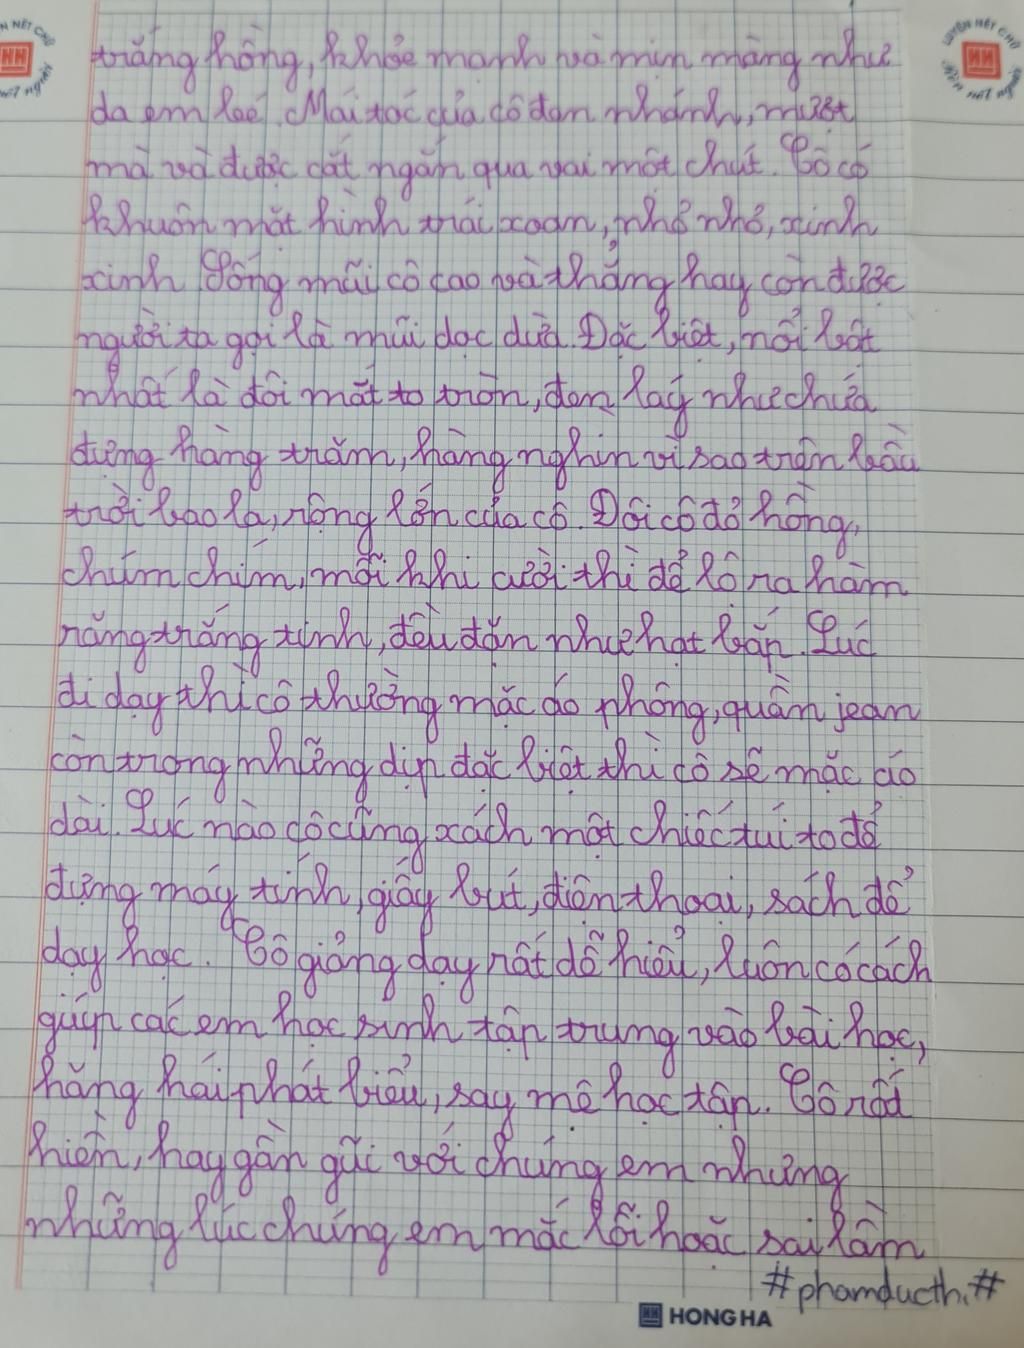 trắng hồng, khỏe mạnh và mịn màng như
da em bé. Mái tóc của cô đen nhánh, mượt
mà và được cắt ngắn qua vai một chút. Cô có
khuôn mặt hình trái xoan, nhỏ nhỏ, xinh
xinh. Sống mũi cô cao và thẳng hay còn được
người ta gọi là mũi dọc dừa. Đặc biệt, nổi bật
nhất là đôi mắt to tròn, đen láy như chứa
đựng hàng trăm, hàng nghìn vì sao trên bầu
trời bao la, rộng lớn của cô. Đôi cô đỏ hồng,
chúm chím, mỗi khi cười thì để lộ ra hàm
răng trắng tinh, đều đặn như hạt bắp. Lúc
đi dạy thì cô thường mặc áo phông, quần jean
còn trong những dịp đặc biệt thì cô sẽ mặc áo
dài. Lúc nào cô cũng xách một chiếc túi to để
đựng máy tính, giấy bút, điện thoại, sách để
dạy học. Cô giảng dạy rất dễ hiểu, luôn có cách
giúp các em học sinh tập trung vào bài học,
hăng hái phát biểu, say mê học tập. Cô rất
hiền, hay gần gũi với chúng em nhưng
những lúc chúng em mắc lỗi hoặc sai lầm
#phamducth.#
HONG HA